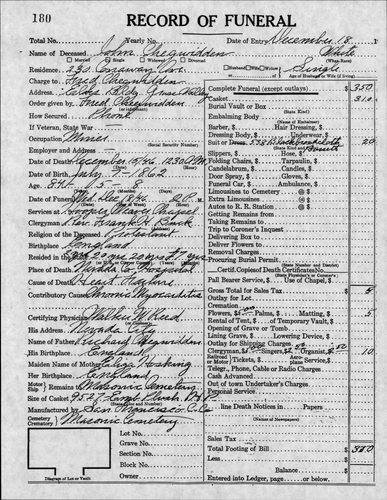 180
RECORD OF FUNERAL
Total No. Yearly No. Date of Entry December 18
Name of Deceased John Chegwidden White
Married Single Widowed Divorced (What Race)
Residence: 230 Conaway Ave. Husband/Wife of Single
Charge to Fred Chegwidden Age of Husband or Wife (if living)
Address: Grass Valley
Order given by Fred Chegwidden
How Secured Phone
If Veteran, State War
Occupation Miner
(Social Security Number)
Employer and Address
Date of Death December 15/46 12:30 P.M.
Date of Birth July 1862
Age: 84 Y. 5
Date of Funeral Wed. Dec 18/46 2 P.M.
Services at Hooper Weaver Chapel
Clergyman: Rev. Frank
Religion of the Deceased Protestant
Birthplace England
Resided in the
Place of Death Nevada Co Hospital
Cause of Death Heart Failure
Contributory Cause Chronic Myocarditis
Certifying Physician Walter W Reed
His Address Nevada City
Name of Father Richard Chegwidden
His Birthplace England
Maiden Name of Mother Eliza Hosking
Her Birthplace England
Motor Ship Remains to Masonic Cemetery
Size of Casket
(State Color and Number)
Manufactured by San Francisco C. Co.
Cemetery Crematory Masonic Cemetery
Lot No.
Grave No.
Section No.
Block No.
Owner
Diagram of Lot or Vault
Complete Funeral (except outlays) $ 350
Casket 310
Burial Vault or Box
(State Kind)
Embalming Body
(Name of Embalmer)
Barber, $ Hair Dressing, $
Dressing Body, $ Underwear, $
Suit or Dress, $ 20
(State Kind and Color)
Slippers, $ Hose, $
Folding Chairs, $ Tarpaulin, $
Candelabrum, $ Candles, $
Door Spray, $ Gloves, $
Funeral Car, $ Ambulance, $
Limousines to Cemetery @ $
Extra Limousines @ $
Autos to R. R. Station @ $
Getting Remains from
Taking Remains to
Trip to Coroner's Inquest
Delivering Box to
Deliver Flowers to
Removal Charges
Procuring Burial Permit
(State Number and District)
Certif. Copies of Death Certificates No.
(State Physician's or Coroner's)
Pall Bearer Service, $ Use of Chapel, $
Gross Total for Sales Tax $ 5
Outlay for Lot
Cremation
Flowers, $ Palms, $ Matting, $ 5
Rental of Tent, $ of Temporary Vault, $
Opening of Grave or Tomb
Lining Grave, $ Lowering Device, $
Outlay for Shipping Charges
Clergyman, $ Singers, $ Organist, $ 10
Railroad Tickets, $ Plane Service, $
Telegr., Phone, Cable or Radio Charges
Cash Advanced
Out of town Undertaker's Charges
Personal Service
line Death Notices in Papers
(Name of Newspapers)
Sales Tax
Total Footing of Bill $ 350
Less
Balance $
Entered into Ledger, page or below.